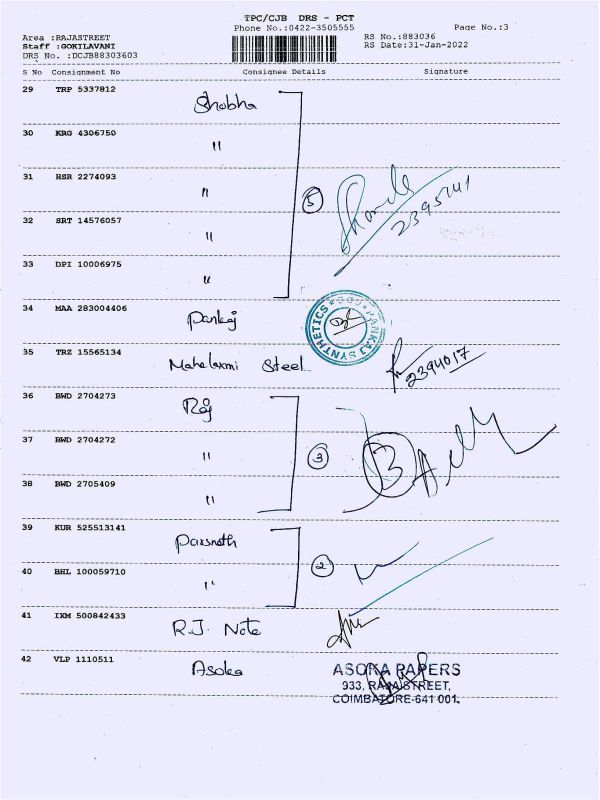 TPC/CJB DRS - PCT
Phone No.:0422-3505555
Page No.:3
Area :RAJASTREET
Staff :GOKILAVANI
DRS No. :DCJB88303603
RS No.:883036
RS Date:31-Jan-2022
S No Consignment No Consignee Details Signature
29 TRP 5337812 Shobha
30 KRG 4306750 "
31 HSR 2274093 " 5
2395741
32 SRT 14576057 "
33 DPI 10006975 "
34 MAA 283004406 Pankaj
PANKAJ SYNTHETICS
35 TRZ 15565134 Mahalaxmi Steel 2394017
36 BWD 2704273 Raj
37 BWD 2704272 " 3 3
38 BWD 2705409 "
39 KUR 525513141 Parsnath
40 BHL 100059710 " 2
41 IXM 500842433 R.J. Note
42 VLP 1110511 Asoka
ASOKA PAPERS
933, RAJA STREET,
COIMBATORE-641 001.